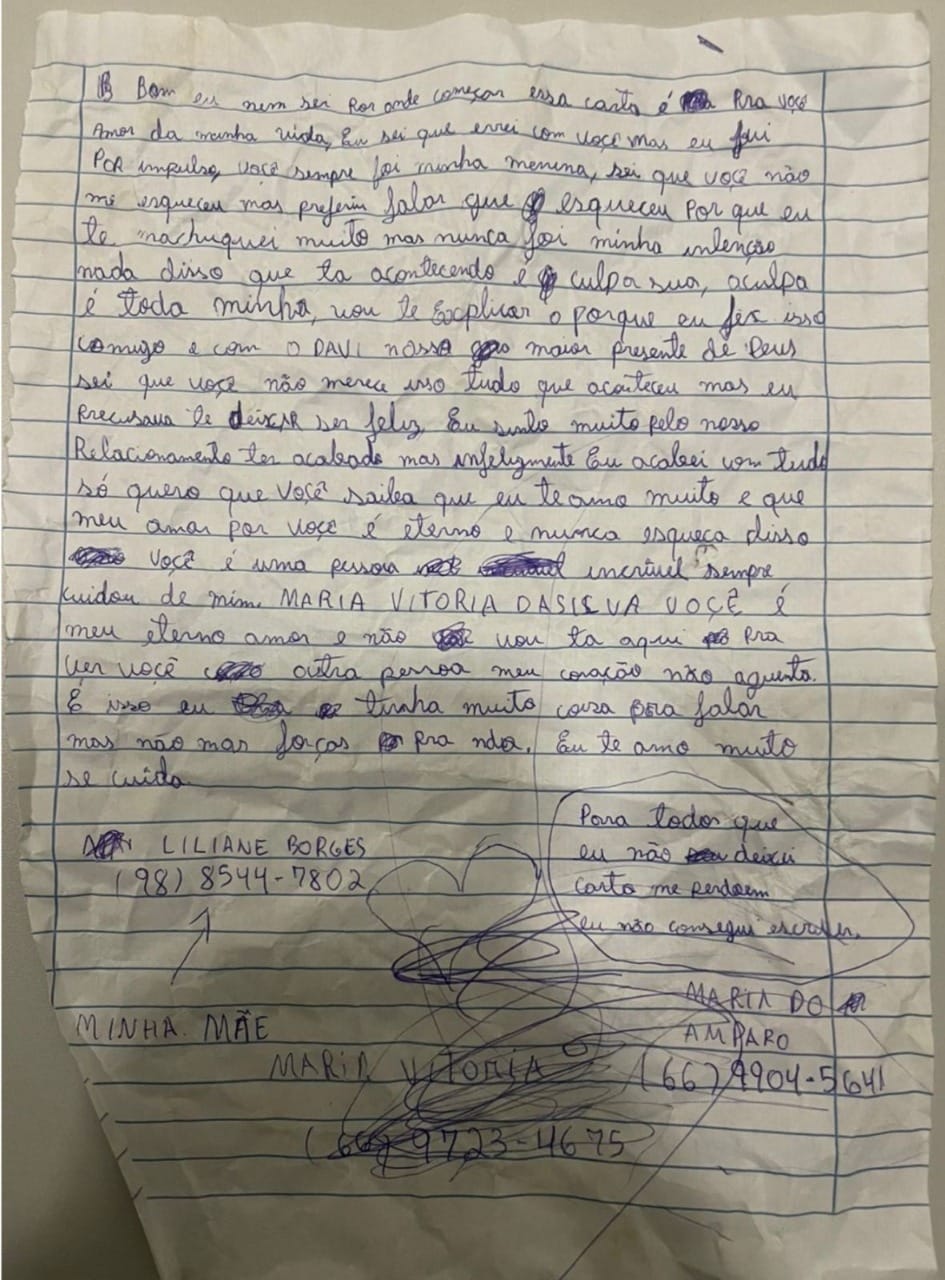 B Bom eu nem sei por onde começar essa carta é pra voçê
Amor da minha vida, Eu sei que errei com voçê mas eu fui
PoR impulso, voçê sempre foi minha menina, sei que voçê não
me esqueceu mas preferiu falar que esqueceu por que eu
te machuquei muito mas nunca foi minha intenção
nada disso que ta acontecendo é culpa sua, aculpa
é toda minha, vou te Explicar o porque eu fez isso
comigo e com O DAVI nosso maior presente de Deus
sei que voçê não merece isso tudo que aconteceu mas eu
precisava te deixAR ser feliz, Eu sinto muito pelo nosso
Relacionamento ter acabado mas infelizmente Eu acabei com tudo
só quero que Voçê saiba que eu te amo muito e que
meu amor por voçê é eterno e nunca esqueça disso
Voçê é uma pessoa incrivel sempre
cuidou de mim. MARIA VITORIA DASILVA VOÇÊ É
meu eterno amor e não vou ta aqui pra
ver voçê outra pessoa meu coração não aguenta.
É isso eu tinha muito coisa pra falar
mas não mas forças pra nda. Eu te amo muito
se cuida.
Para todos que
eu não deixei
carta me perdoem
eu não consegui escrever.
LILIANE BORGES
(98) 8544-7802
MINHA MÃE
MARIA DO
AMPARO
(66) 9904-5641
MARIA VITORIA
(66) 9723-4675